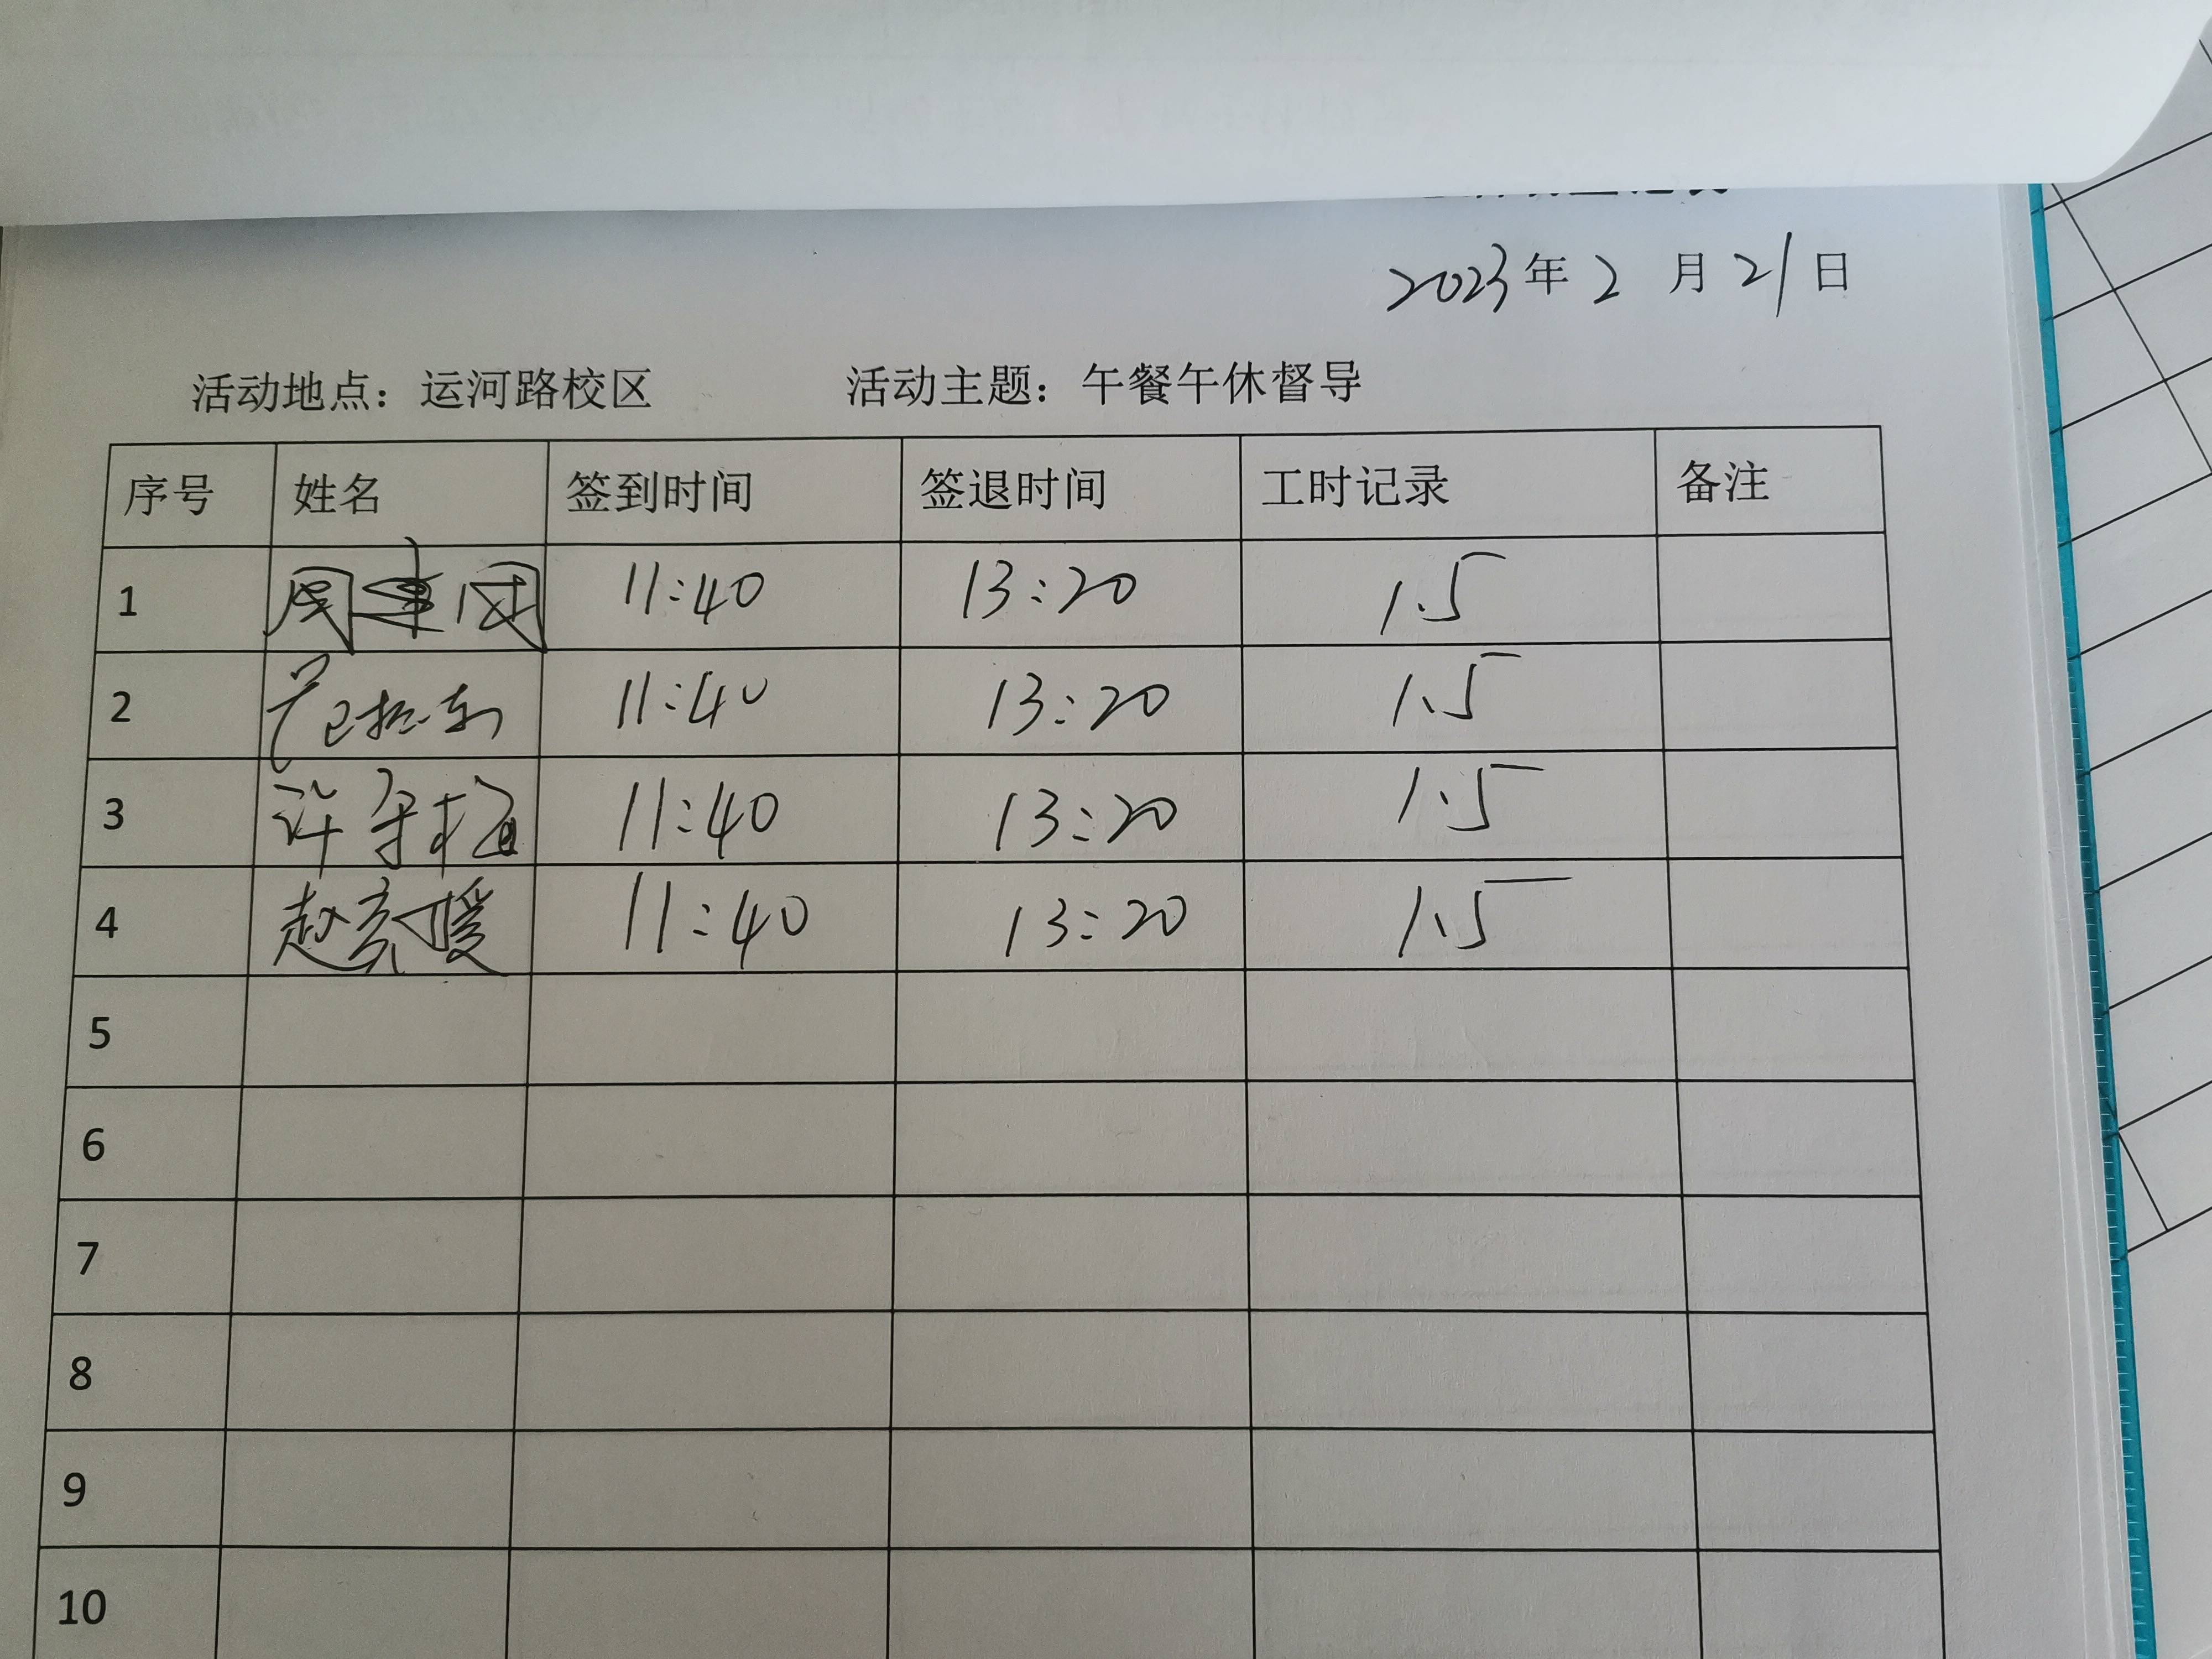 2023年2月21日
活动地点：运河路校区 活动主题：午餐午休督导
序号 姓名 签到时间 签退时间 工时记录 备注
1 周建国 11:40 13:20 1.5
2 11:40 13:20 1.5
3 许守梅 11:40 13:20 1.5
4 11:40 13:20 1.5
5
6
7
8
9
10